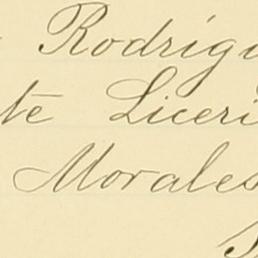 Rodrigu
te Liceri
Morales